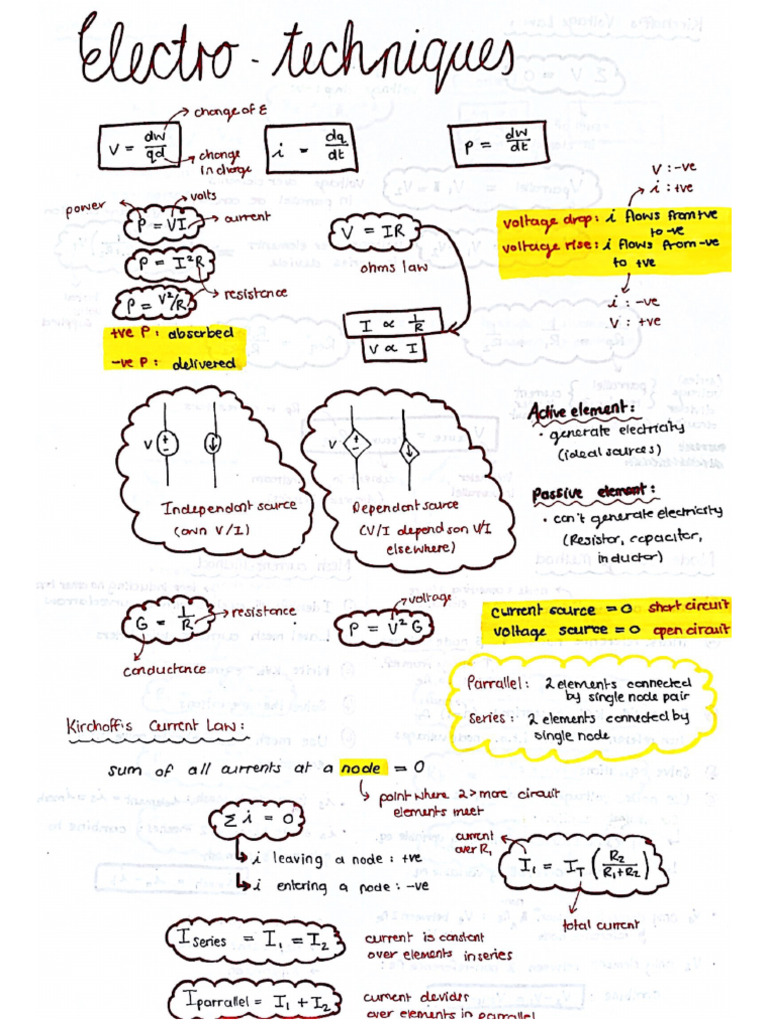 Electro-techniques
change of E
V = dw/qd
change in charge
i = dq/dt
P = dw/dt
V : -ve
i : +ve
power
volts
P = VI
current
V = IR
ohms law
voltage drop: i flows from +ve
to -ve
voltage rise: i flows from -ve
to +ve
P = I²R
P = V²/R
resistance
i : -ve
V : +ve
I ∝ 1/R
V ∝ I
+ve P : absorbed
-ve P : delivered
V + -
Independant source
(own V/I)
V + -
Dependant source
(V/I depends on V/I
elsewhere)
Active element:
• generate electricity
(ideal sources)
Passive element:
• can't generate electricity
(Resistor, capacitor,
inductor)
G = 1/R
resistance
conductance
voltage
P = V² G
current source = 0 short circuit
voltage source = 0 open circuit
Parrallel: 2 elements connected
by single node pair
Series: 2 elements connected by
single node
Kirchoff's Current Law:
sum of all currents at a node = 0
point where 2 > more circuit
elements meet
Σ i = 0
i leaving a node : +ve
i entering a node : -ve
current
over R₁
I₁ = I_T (R₂/R₁+R₂)
total current
I series = I₁ = I₂
current is constant
over elements in series
I parrallel = I₁ + I₂
current devides
over elements in parrallel